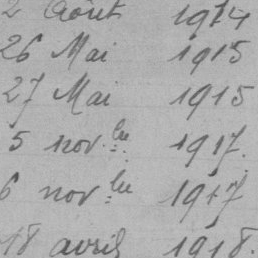 2 Août 1914
26 Mai 1915
27 Mai 1915
5 nov.bre 1917.
6 nov.bre 1917
18 avril 1918.